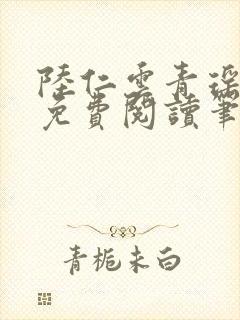 陸仁雲青瑤
免費閱讀筆
青梔未白